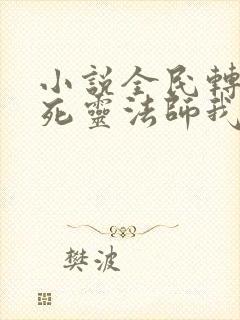 小說全民轉
死靈法師我
樊波